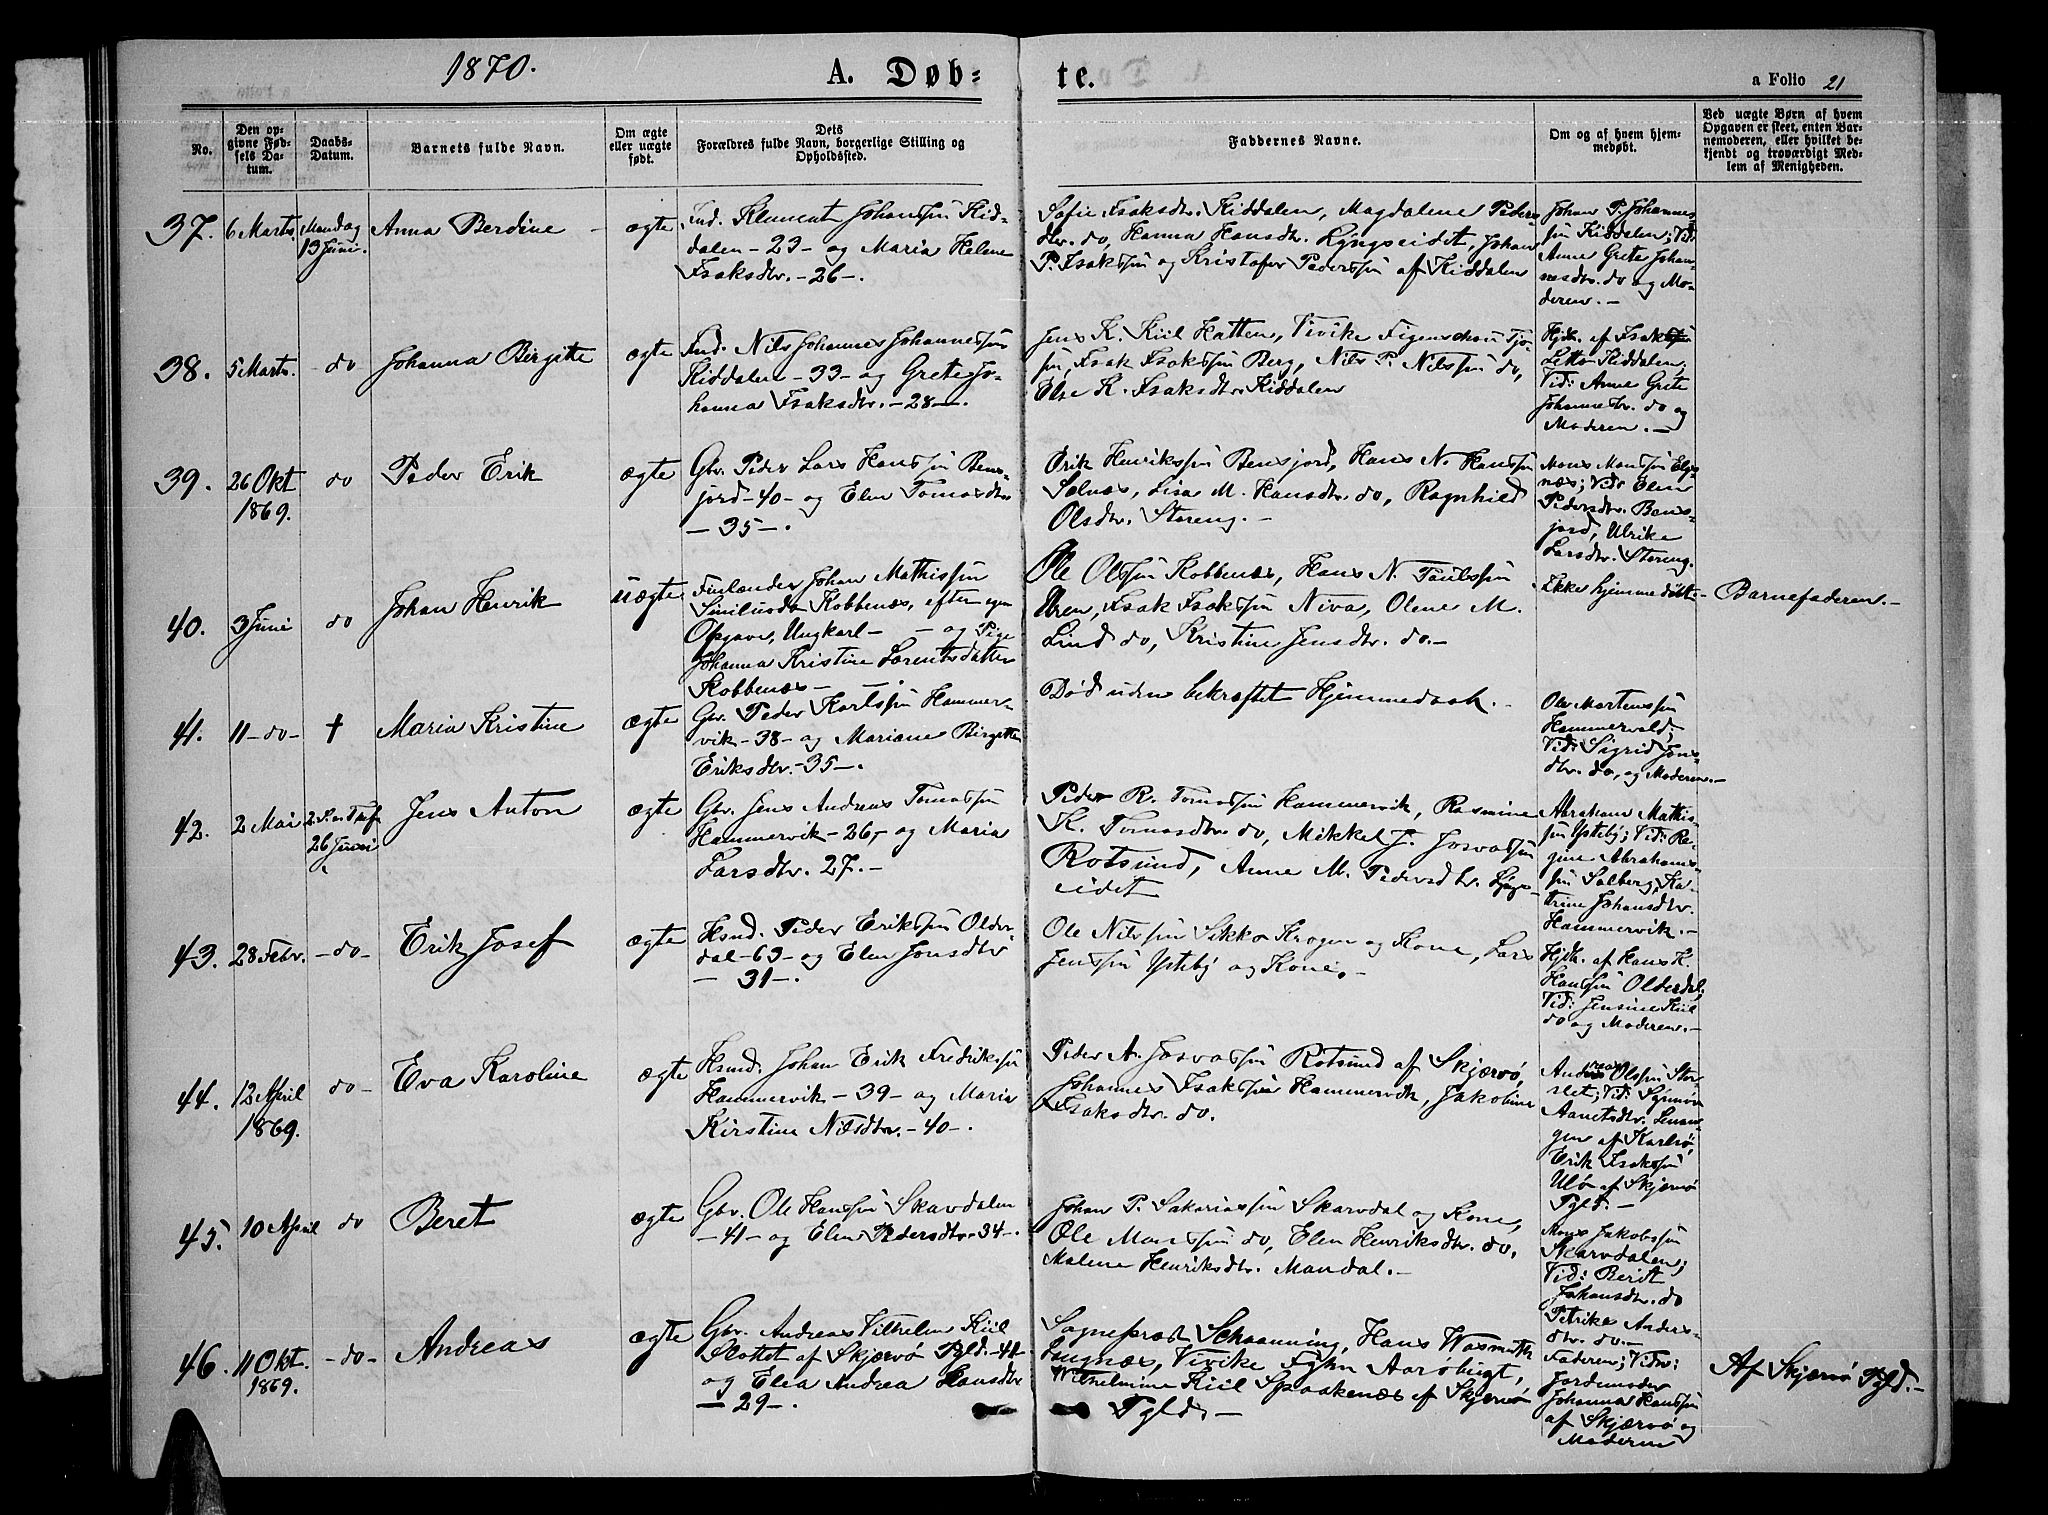 1870.
A. Døb-
te.
a Folio 21
No.
Den op-
givne Fød-
sels Da-
tum.
Daabs-
Datum.
Barnets fulde Navn.
Om ægte
eller uægte
født.
Dets
Forældres fulde Navn, borgerlige Stilling og
Opholdssted.
Faddernes Navne.
Om og af hvem hjem-
medøbt.
Ved uægte Børn af hvem
Opgaven er skeet, enten Bar-
nemoderen, eller hvilket be-
kjendt og troværdigt Med-
lem af Menigheden.
37.
6 Marts.
Mandag
13 Juni.
Anna Berdine
ægte
Ind. Klement Johanssøn Kid-
dalen - 23 - og Maria Helene
Isaksdtr. - 26 -.
Sofie Isaksdtr. Kiddalen, Magdalene Peders-
dtr. do, Hanna Hansdtr. Lyngseidet, Johan
P. Isakssøn og Kristofer Pederssøn af Kiddalen
Johan P. Johannes-
søn Kiddalen; Vid:
Anne Grete Johan-
nesdtr. do og Mo-
deren. -
38.
5 Marts.
do
Johanna Birgitte
ægte
Ind. Nils Johannes Johannessøn
Kiddalen - 33 - og Grete Jo-
hanna Isaksdtr. - 28 -.
Jens K. Kiil Hatten, Vivike Figenschou
søn, Isak Isakssøn Berg, Nils P. Nilssøn do,
Else K. Isaksdtr. Kiddalen
Hjdb. af Isak
Kiddalen;
Vid: Anne Grete
Johannesdtr. do og
Moderen. -
39.
26 Okt
1869.
do
Peder Erik
ægte
Gbr. Peder Lars Hanssøn Bens-
jord - 40 - og Elen Tomasdtr
- 35 -.
Erik Henrikssøn Bensjord, Hans N. Hanssøn
Solnæs, Lisa M. Hansdtr. do, Ragnhild
Olsdtr. Storeng. -
Mons Monssøn Elve-
næs; Vid: Elen
Pedersdtr. Bens-
jord, Ulrika
Larsdtr. Storeng.
40.
3 Juni
do
Johan Henrik
uægte
Finlænder Johan Mathissøn
Kobbenæs, efter egen
Opgave, Ungkarl - - og Pige
Johanna Kristine Lorentsdatter
Kobbenæs - -.
Ole Olssøn Kobbenæs, Hans N. Paulssøn
Uren, Isak Isakssøn Niva, Olene M.
Lind do, Kristine Jensdtr. do. -
Ikke hjemmedøbt -
Barnefaderen. -
41.
11 - do -
†
Maria Kristine
ægte
Gbr. Peder Karlssøn Hammer-
vik - 38 - og Mariane Birgitte
Eriksdtr. - 35 -.
Død uden bekræftet Hjemmedaab. -
Ole Mortenssøn
Hammervold;
Vid: Sigrid Jons-
dtr. do, og Moderen. -
42.
2 Mai
2. S. e. Tref.
26 Juni
Jens Anton
ægte
Gbr. Jens Andreas Tomassøn
Hammervik - 26, - og Maria
Larsdtr. 27. -
Peder R. Tomassøn Hammervik, Rasmine
K. Tomasdtr. do, Mikkel J. Josvassøn
Rotsund, Anne M. Pedersdtr. Lyngs-
eidet
Abraham Mathis-
søn Ysteby; Vid: Ra-
gine Abrahams-
søn Solberg, Ka-
trine Johansdtr.
Hammervik. -
43.
28 Febr.
- do -
Erik Josef
ægte
Hsmd. Peder Erikssøn Older-
dal - 63 - og Elen Jonsdtr
- 31 -.
Ole Nilssøn Sikko Krogen og Kone, Lars
Jenssøn Ysteby og Kone. -
Hjdb. af Hans K.
Hanssøn Olderdal;
Vid: Jensine Kiil
do og Moderen. -
44.
12 April
1869.
do -
Eva Karoline
ægte
Hsmd. Johan Erik Fredrikssøn
Hammervik - 39 - og Maria
Kirstine Nilsdtr. - 40 -.
Peder A. Josvassøn Rotsund af Skjærvø,
Johannes Isakssøn Hammervik, Jakobine
Isaksdtr. do.
Andreas Olssøn Stor-
slet; Vid: Synnøv
Aanetsdtr. Lenan-
gen af Karlsø,
Erik Isakssøn
Ulø af Skjærvø
Pgld. -
45.
10 April
do
Beret
ægte
Gbr. Ole Hanssøn Skardalen
- 41 - og Elen Pedersdtr - 34 -.
Johan P. Sakariassøn Skardal og Kone,
Ole Monssøn do, Elen Henriksdtr. do,
Malene Henriksdtr. Mandal. -
Mons Jakobssøn
Skardalen;
Vid: Berit
Johansdtr. do
Petrike Anders-
dtr. do. -
46.
11 Okt.
1869.
- do -
Andreas
ægte
Gbr. Andreas Vilhelm Kiil
Slottet af Skjærvø Pgld. - 44
og Elea Andrea Hansdtr
- 29 -.
Sogneprest Schaanning, Hans Wasmuth
Lyngnæs, Vivike Fyhn Aarøbugt,
Wilhelmine Kiil Spaakenæs af Skjærvø
Pgld. -
Faderen; Vid:
Jordemoder
Johanna Hanssøn
af Skjærvø og
Moderen
Af Skjærvø Pgld. -